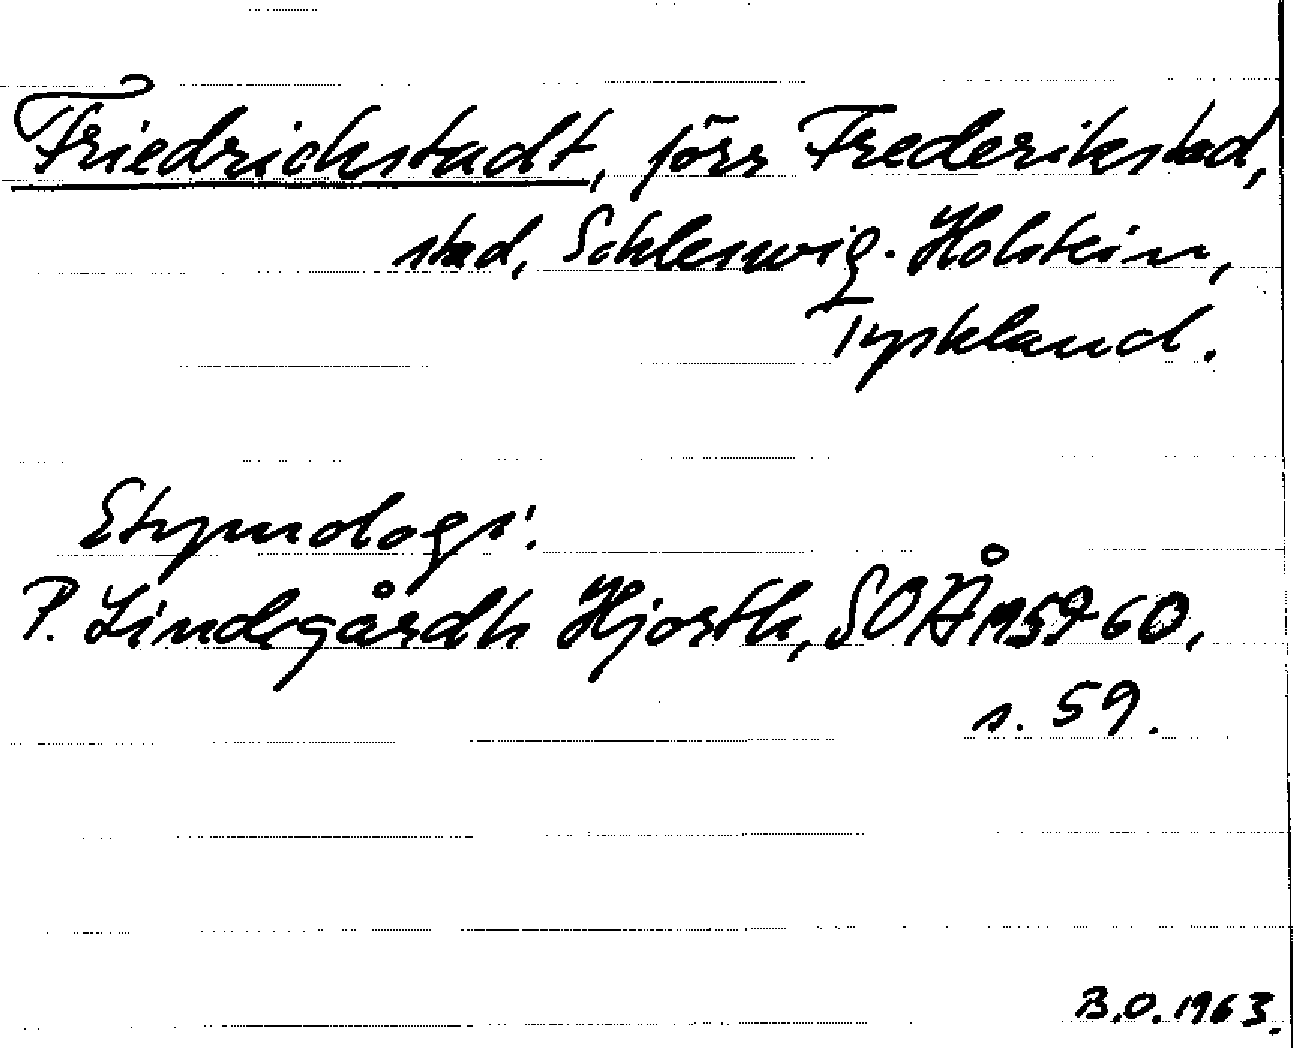 Friedrichstadt, förr Frederikstad,
stad, Schleswig-Holstein,
Tyskland.
Etymologi:
P. Lindegårdh Hjorth, SOÅ 1959-60,
s. 59.
B.O. 1963.